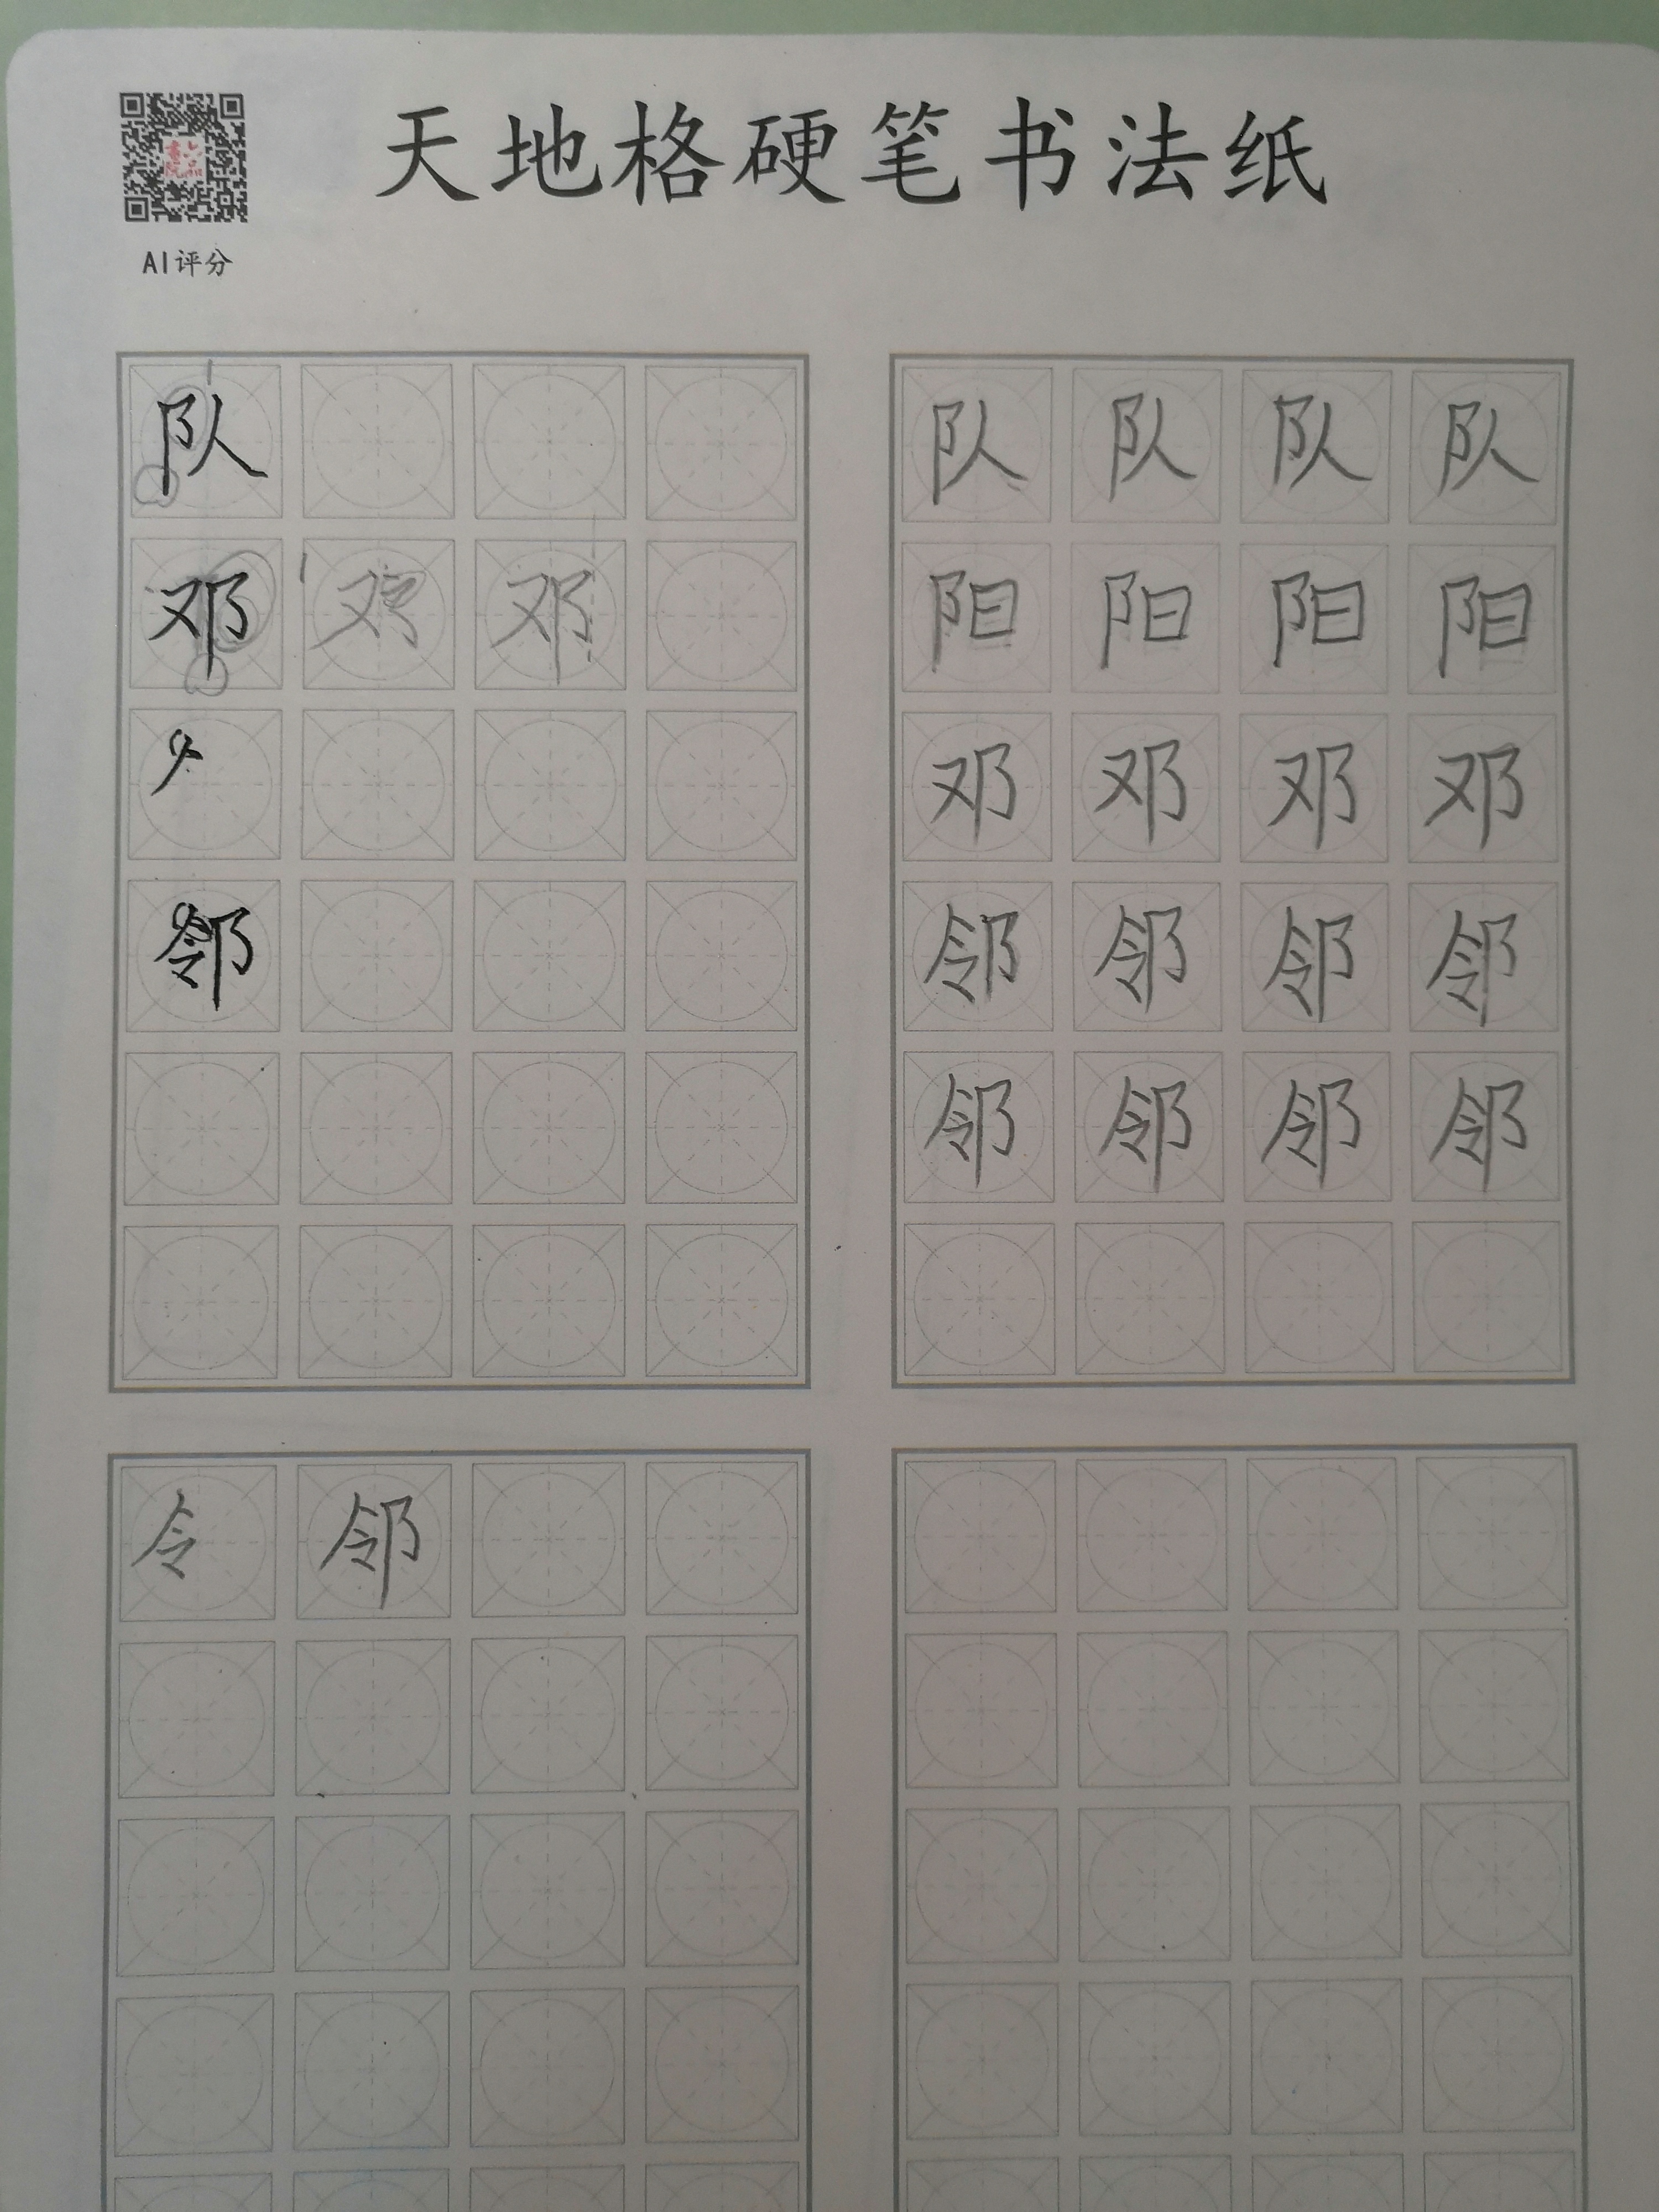 天地格硬笔书法纸
AI评分
队
邓 邓
邻
队 队 队 队
阳 阳 阳 阳
邓 邓 邓 邓
邻 邻 邻 邻
邻 邻 邻 邻
令 邻